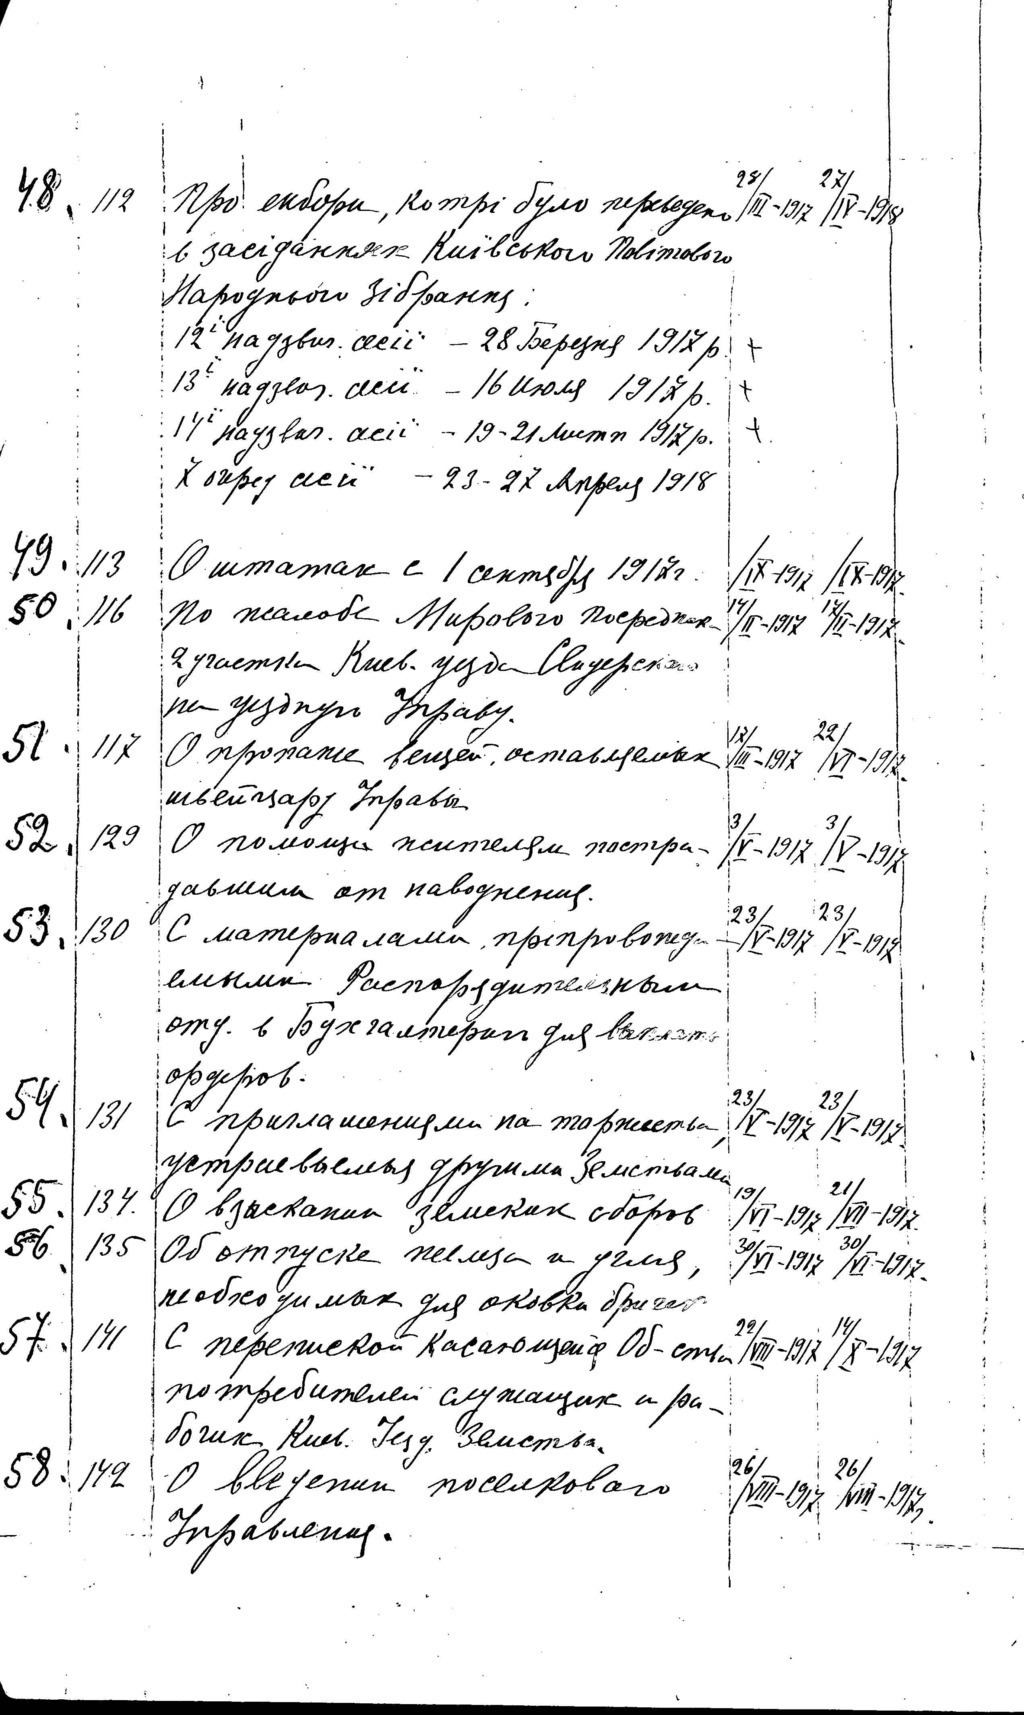 48. 112 Про вибори, котрі було переведено 28/III-1917 27/IV-1918
в засіданнях Київського Повітового
Народнього Зібрання:
12ї надзвич. сесії - 28 Березня 1917 р. +
13ї надзвич. сесії - 16 Июля 1917 р. +
14ї надзвич. сесії - 19-21 Листп 1917 р. +
7 очред сесії - 23-27 Апреля 1918
49. 113 О штатах с 1 сентября 1917 г. /IX-1917 /IX-1917
50. 116 По жалобе Мирового Посредник- 14/II-1917 17/II-1917
2 участка Киев. уезда
на уездную Управу.
51. 117 О пропаже вещей, оставляемых 12/III-1917 22/VI-1917
швейцару Управы
52. 129 О помощи жителям постра- 3/V-1917 3/V-1917
давшим от наводнения.
53. 130 С материалами, препровожда- 23/V-1917 23/V-1917
емыми Распорядительным
отд. в Бухгалтерию для
ордеров.
54. 131 С приглашениями на торжества, 23/V-1917 23/V-1917
устраиваемыя другими Земствами
55. 134. О взыскании земских сборов 19/VI-1917 21/VII-1917.
56. 135 Об отпуске железа и угля, 30/VI-1917 30/VI-1917.
необходимых для оковки бричек
57. 141 С перепиской касающейся Об-ства 22/VIII-1917 14/X-1917
потребителей служащих и ра-
бочих Киев. Уезд. Земства.
58. 142 О введении поселкового 26/VIII-1917 26/VIII-1917.
Управления.